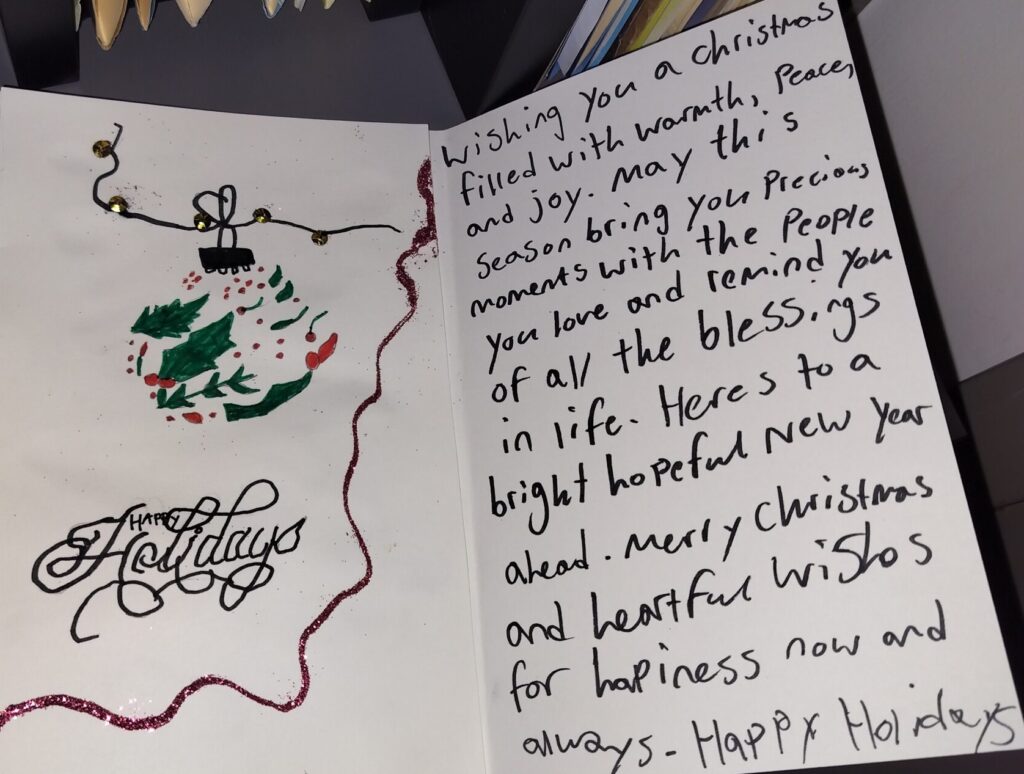 HAPPY
Holidays
wishing you a christmas
filled with warmth, peace,
and joy. may this
season bring you precious
moments with the people
you love and remind you
of all the blessings
in life. Heres to a
bright hopeful New Year
ahead. merry christmas
and heartful wishos
for hapiness now and
always- Happy Holidays